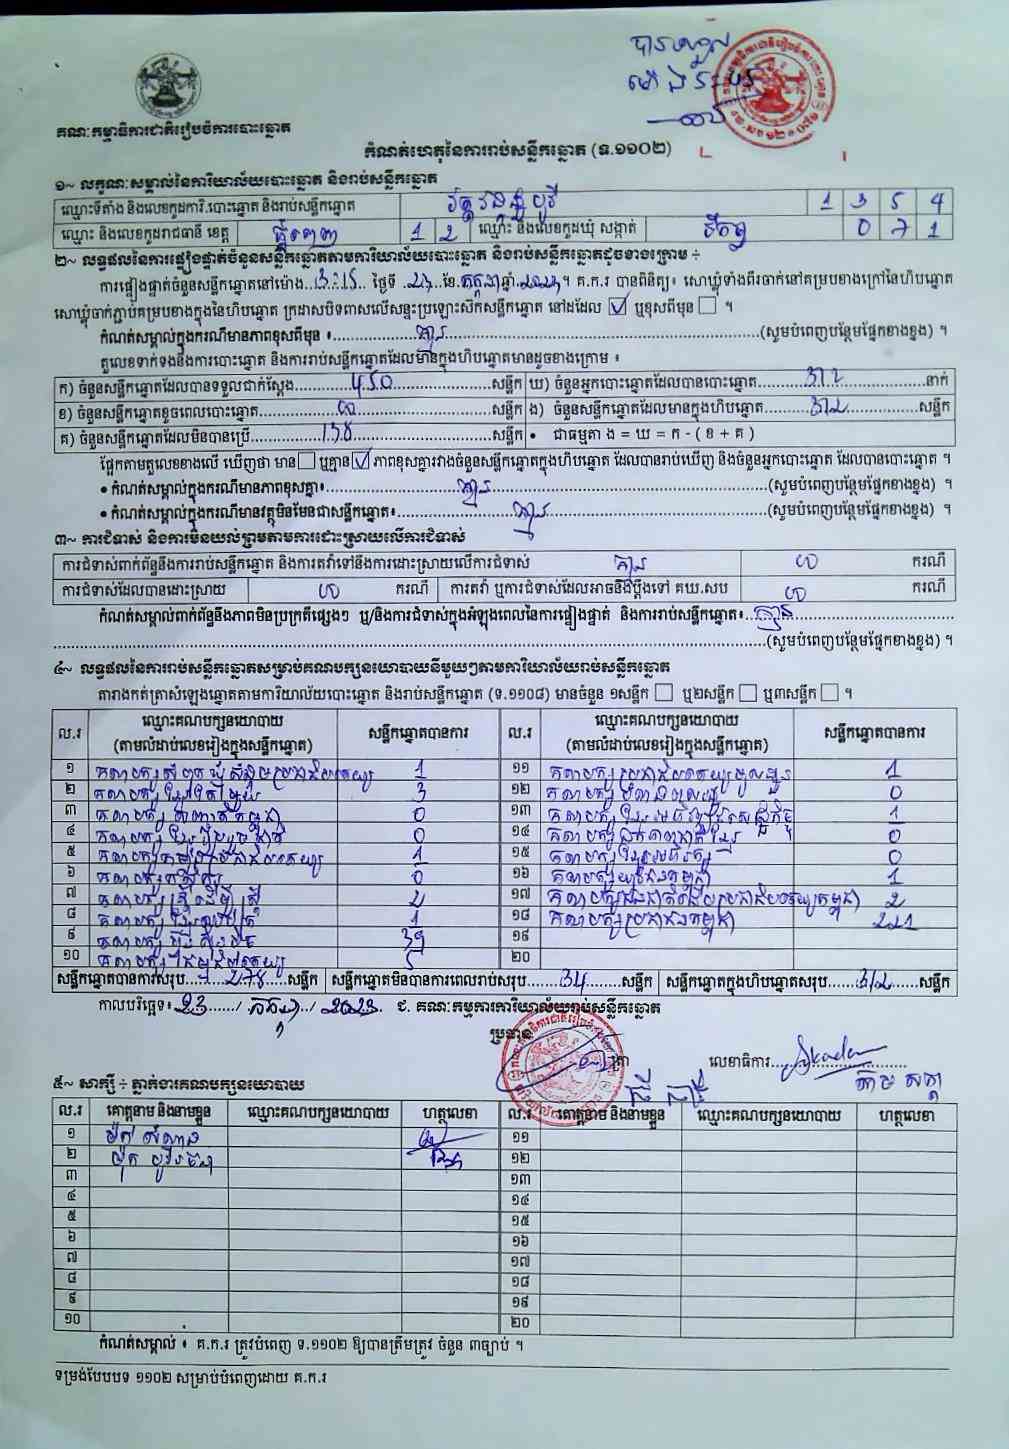 គណៈកម្មាធិការជាតិរៀបចំការបោះឆ្នោត
កំណត់ហេតុនៃការរាប់សន្លឹកឆ្នោត (ទ.១១០២)
១~ លក្ខណៈសម្គាល់នៃការិយាល័យបោះឆ្នោត និងរាប់សន្លឹកឆ្នោត
ឈ្មោះទីតាំង និងលេខកូដការិ.បោះឆ្នោត និងរាប់សន្លឹកឆ្នោត 1 3 5 4
ឈ្មោះ និងលេខកូដរាជធានី ខេត្ត ភ្នំពេញ 1 2 ឈ្មោះ និងលេខកូដឃុំ សង្កាត់ 0 7 1
២~ លទ្ធផលនៃការផ្ទៀងផ្ទាត់ចំនួនសន្លឹកឆ្នោតតាមការិយាល័យបោះឆ្នោត និងរាប់សន្លឹកឆ្នោតដូចខាងក្រោម ÷
ការផ្ទៀងផ្ទាត់ចំនួនសន្លឹកឆ្នោតនៅម៉ោង 3:15 ថ្ងៃទី 23 ខែ កក្កដា ឆ្នាំ 2023។ គ.ក.រ បានពិនិត្យ៖ សោឃ្លុំទាំងពីរចាក់នៅគម្របខាងក្រៅនៃហិបឆ្នោត
សោឃ្លុំចាក់ភ្ជាប់គម្របខាងក្នុងនៃហិបឆ្នោត ក្រដាសបិទពាសលើសន្ទះប្រឡោះសឹកសន្លឹកឆ្នោត នៅដដែល ☑ ឬខុសពីមុន ☐ ។
កំណត់សម្គាល់ក្នុងករណីមានភាពខុសពីមុន ៖ គ្មាន (សូមបំពេញបន្ថែមផ្នែកខាងខ្នង) ។
តួលេខទាក់ទងនឹងការបោះឆ្នោត និងការរាប់សន្លឹកឆ្នោតដែលមានក្នុងហិបឆ្នោតមានដូចខាងក្រោម ៖
ក) ចំនួនសន្លឹកឆ្នោតដែលបានទទួលជាក់ស្តែង 450 សន្លឹក ឃ) ចំនួនអ្នកបោះឆ្នោតដែលបានបោះឆ្នោត 312 នាក់
ខ) ចំនួនសន្លឹកឆ្នោតខូចពេលបោះឆ្នោត សន្លឹក ង) ចំនួនសន្លឹកឆ្នោតដែលមានក្នុងហិបឆ្នោត 312 សន្លឹក
គ) ចំនួនសន្លឹកឆ្នោតដែលមិនបានប្រើ 138 សន្លឹក • ជាធម្មតា ង = ឃ = ក - ( ខ + គ )
ផ្អែកតាមតួលេខខាងលើ ឃើញថា មាន ☐ ឬគ្មាន ☑ ភាពខុសគ្នារវាងចំនួនសន្លឹកឆ្នោតក្នុងហិបឆ្នោត ដែលបានរាប់ឃើញ និងចំនួនអ្នកបោះឆ្នោត ដែលបានបោះឆ្នោត ។
• កំណត់សម្គាល់ក្នុងករណីមានភាពខុសគ្នា៖ គ្មាន (សូមបំពេញបន្ថែមផ្នែកខាងខ្នង) ។
• កំណត់សម្គាល់ក្នុងករណីមានវត្ថុមិនមែនជាសន្លឹកឆ្នោត៖ គ្មាន (សូមបំពេញបន្ថែមផ្នែកខាងខ្នង) ។
៣~ ការជំទាស់ និងការមិនយល់ព្រមតាមការដោះស្រាយលើការជំទាស់
ការជំទាស់ពាក់ព័ន្ធនឹងការរាប់សន្លឹកឆ្នោត និងការតវ៉ាទៅនឹងការដោះស្រាយលើការជំទាស់ គ្មាន ករណី
ការជំទាស់ដែលបានដោះស្រាយ ករណី ការតវ៉ា ឬការជំទាស់ដែលអាចនឹងប្តឹងទៅ គឃ.សប ករណី
កំណត់សម្គាល់ពាក់ព័ន្ធនឹងភាពមិនប្រក្រតីផ្សេងៗ ឬ/និងការជំទាស់ក្នុងអំឡុងពេលនៃការផ្ទៀងផ្ទាត់ និងការរាប់សន្លឹកឆ្នោត៖ គ្មាន
(សូមបំពេញបន្ថែមផ្នែកខាងខ្នង) ។
៤~ លទ្ធផលនៃការរាប់សន្លឹកឆ្នោតសម្រាប់គណបក្សនយោបាយនីមួយៗតាមការិយាល័យរាប់សន្លឹកឆ្នោត
តារាងកត់ត្រាសំឡេងឆ្នោតតាមការិយាល័យបោះឆ្នោត និងរាប់សន្លឹកឆ្នោត (ទ.១១០៨) មានចំនួន ១សន្លឹក ☐ ឬ២សន្លឹក ☐ ឬ៣សន្លឹក ☐ ។
ល.រ ឈ្មោះគណបក្សនយោបាយ (តាមលំដាប់លេខរៀងក្នុងសន្លឹកឆ្នោត) សន្លឹកឆ្នោតបានការ ល.រ ឈ្មោះគណបក្សនយោបាយ (តាមលំដាប់លេខរៀងក្នុងសន្លឹកឆ្នោត) សន្លឹកឆ្នោតបានការ
១ គណបក្សសំបុកឃ្មុំសង្គមប្រជាធិបតេយ្យ 1 ១១ គណបក្សប្រជាធិបតេយ្យមូលដ្ឋាន 1
២ គណបក្ស 3 ១២ គណបក្ស 0
៣ គណបក្ស 0 ១៣ គណបក្សខ្មែរអភិវឌ្ឍន៍សេដ្ឋកិច្ច 1
៤ គណបក្សខ្មែររួបរួមជាតិ 0 ១៤ គណបក្ស 0
៥ គណបក្ស 1 ១៥ គណបក្ស 0
៦ គណបក្សកសិករ 0 ១៦ គណបក្សយុវជនកម្ពុជា 1
៧ គណបក្សស្ត្រីដើម្បីស្ត្រី 2 ១៧ គណបក្ស 2
៨ គណបក្ស 1 ១៨ គណបក្សប្រជាជនកម្ពុជា 221
៩ គណបក្សហ៊្វុនស៊ិនប៉ិច 39 ១៩
១០ គណបក្ស 5 ២០
សន្លឹកឆ្នោតបានការសរុប 278 សន្លឹក សន្លឹកឆ្នោតមិនបានការពេលរាប់សរុប 34 សន្លឹក សន្លឹកឆ្នោតក្នុងហិបឆ្នោតសរុប 312 សន្លឹក
កាលបរិច្ឆេទ៖ 23 / កក្កដា / 2023 ជ. គណៈកម្មការការិយាល័យរាប់សន្លឹកឆ្នោត
ប្រធាន
លេខាធិការ
៥~ សាក្សី ÷ ភ្នាក់ងារគណបក្សនយោបាយ
ល.រ គោត្តនាម និងនាមខ្លួន ឈ្មោះគណបក្សនយោបាយ ហត្ថលេខា ល.រ គោត្តនាម និងនាមខ្លួន ឈ្មោះគណបក្សនយោបាយ ហត្ថលេខា
១ ១១
២ ១២
៣ ១៣
៤ ១៤
៥ ១៥
៦ ១៦
៧ ១៧
៨ ១៨
៩ ១៩
១០ ២០
កំណត់សម្គាល់ ៖ គ.ក.រ ត្រូវបំពេញ ទ.១១០២ ឱ្យបានត្រឹមត្រូវ ចំនួន ៣ច្បាប់ ។
ទម្រង់បែបបទ ១១០២ សម្រាប់បំពេញដោយ គ.ក.រ